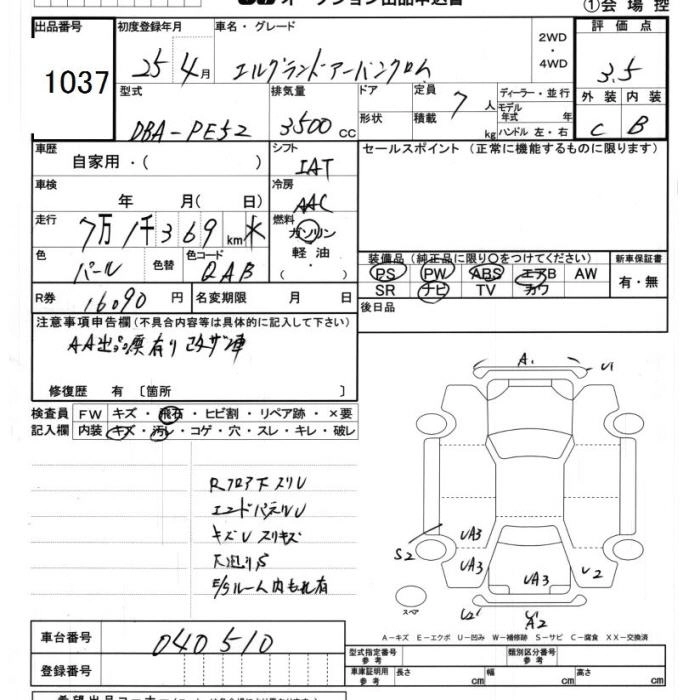 オークション出品申込書
①会場控
出品番号 1037
初度登録年月 25 4月
車名・グレード エルグランド アーバンクロム
2WD・4WD
評価点 3.5
外装 C
内装 B
型式 DBA-PE52
排気量 3500cc
ドア
形状
定員 7人
積載 kg
ディーラー・並行
モデル年式 年
ハンドル 左・右
車歴 自家用・( )
車検 年 月( 日)
走行 7万1千369km
色 パール
色替
色コード QAB
R券 16090円
名変期限 月 日
シフト IAT
冷房 AAC
燃料 ガソリン・軽油・( )
セールスポイント(正常に機能するものに限ります)
装備品(純正品に限り○をつけてください)
PS PW ABS エアB AW
SR ナビ TV カワ
新車保証書 有・無
後日品
注意事項申告欄(不具合内容等は具体的に記入して下さい)
AA出品歴有り
修復歴 有〔箇所 〕
検査員記入欄
FW キズ・飛石・ヒビ割・リペア跡・×要
内装 キズ・汚レ・コゲ・穴・スレ・キレ・破レ
Rフロア下スリU
エンドパネルU
キズU スリキズ
E/Sルーム内もれ有
A1
U1
S2
UA3
UA3
UA3
U2
U2
A2
スペア
A-キズ E-エクボ U-凹み W-補修跡 S-サビ C-腐食 XX-交換済
車台番号 040510
登録番号
型式指定番号 参考
類別区分番号 参考
車庫証明用 参考 長さ cm 幅 cm 高さ cm
希望出品コーナー